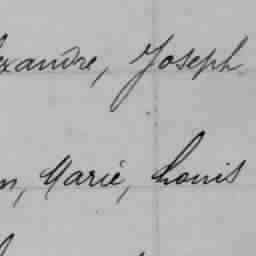 exandre, Joseph
n, Marie, Louis